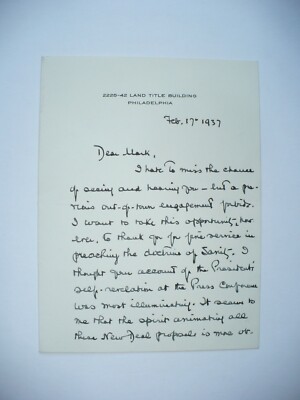 2225-42 LAND TITLE BUILDING
PHILADELPHIA
Feb. 17th 1937
Dear Mark,
I hate to miss the chance
of seeing and hearing you - but a pre-
vious out-of-town engagement forbids.
I want to take this opportunity, how-
ever, to thank you for fine service in
preaching the doctrine of Sanity. I
thought your account of the President's
self-revelation at the Press Conference
was most illuminating. It seems to
me that the spirit animating all
these New Deal proposals is more